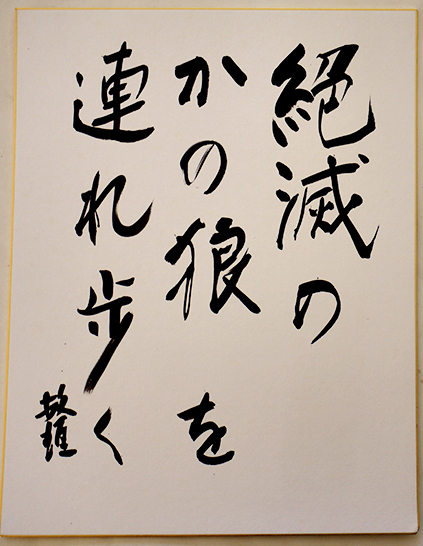 絶滅の
かの狼を
連れ歩く